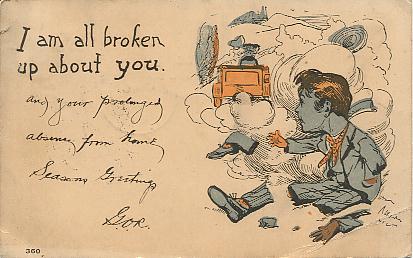 I am all broken
up about you.
And your prolonged
absence from home
Seasons Greetings
Geo.
360